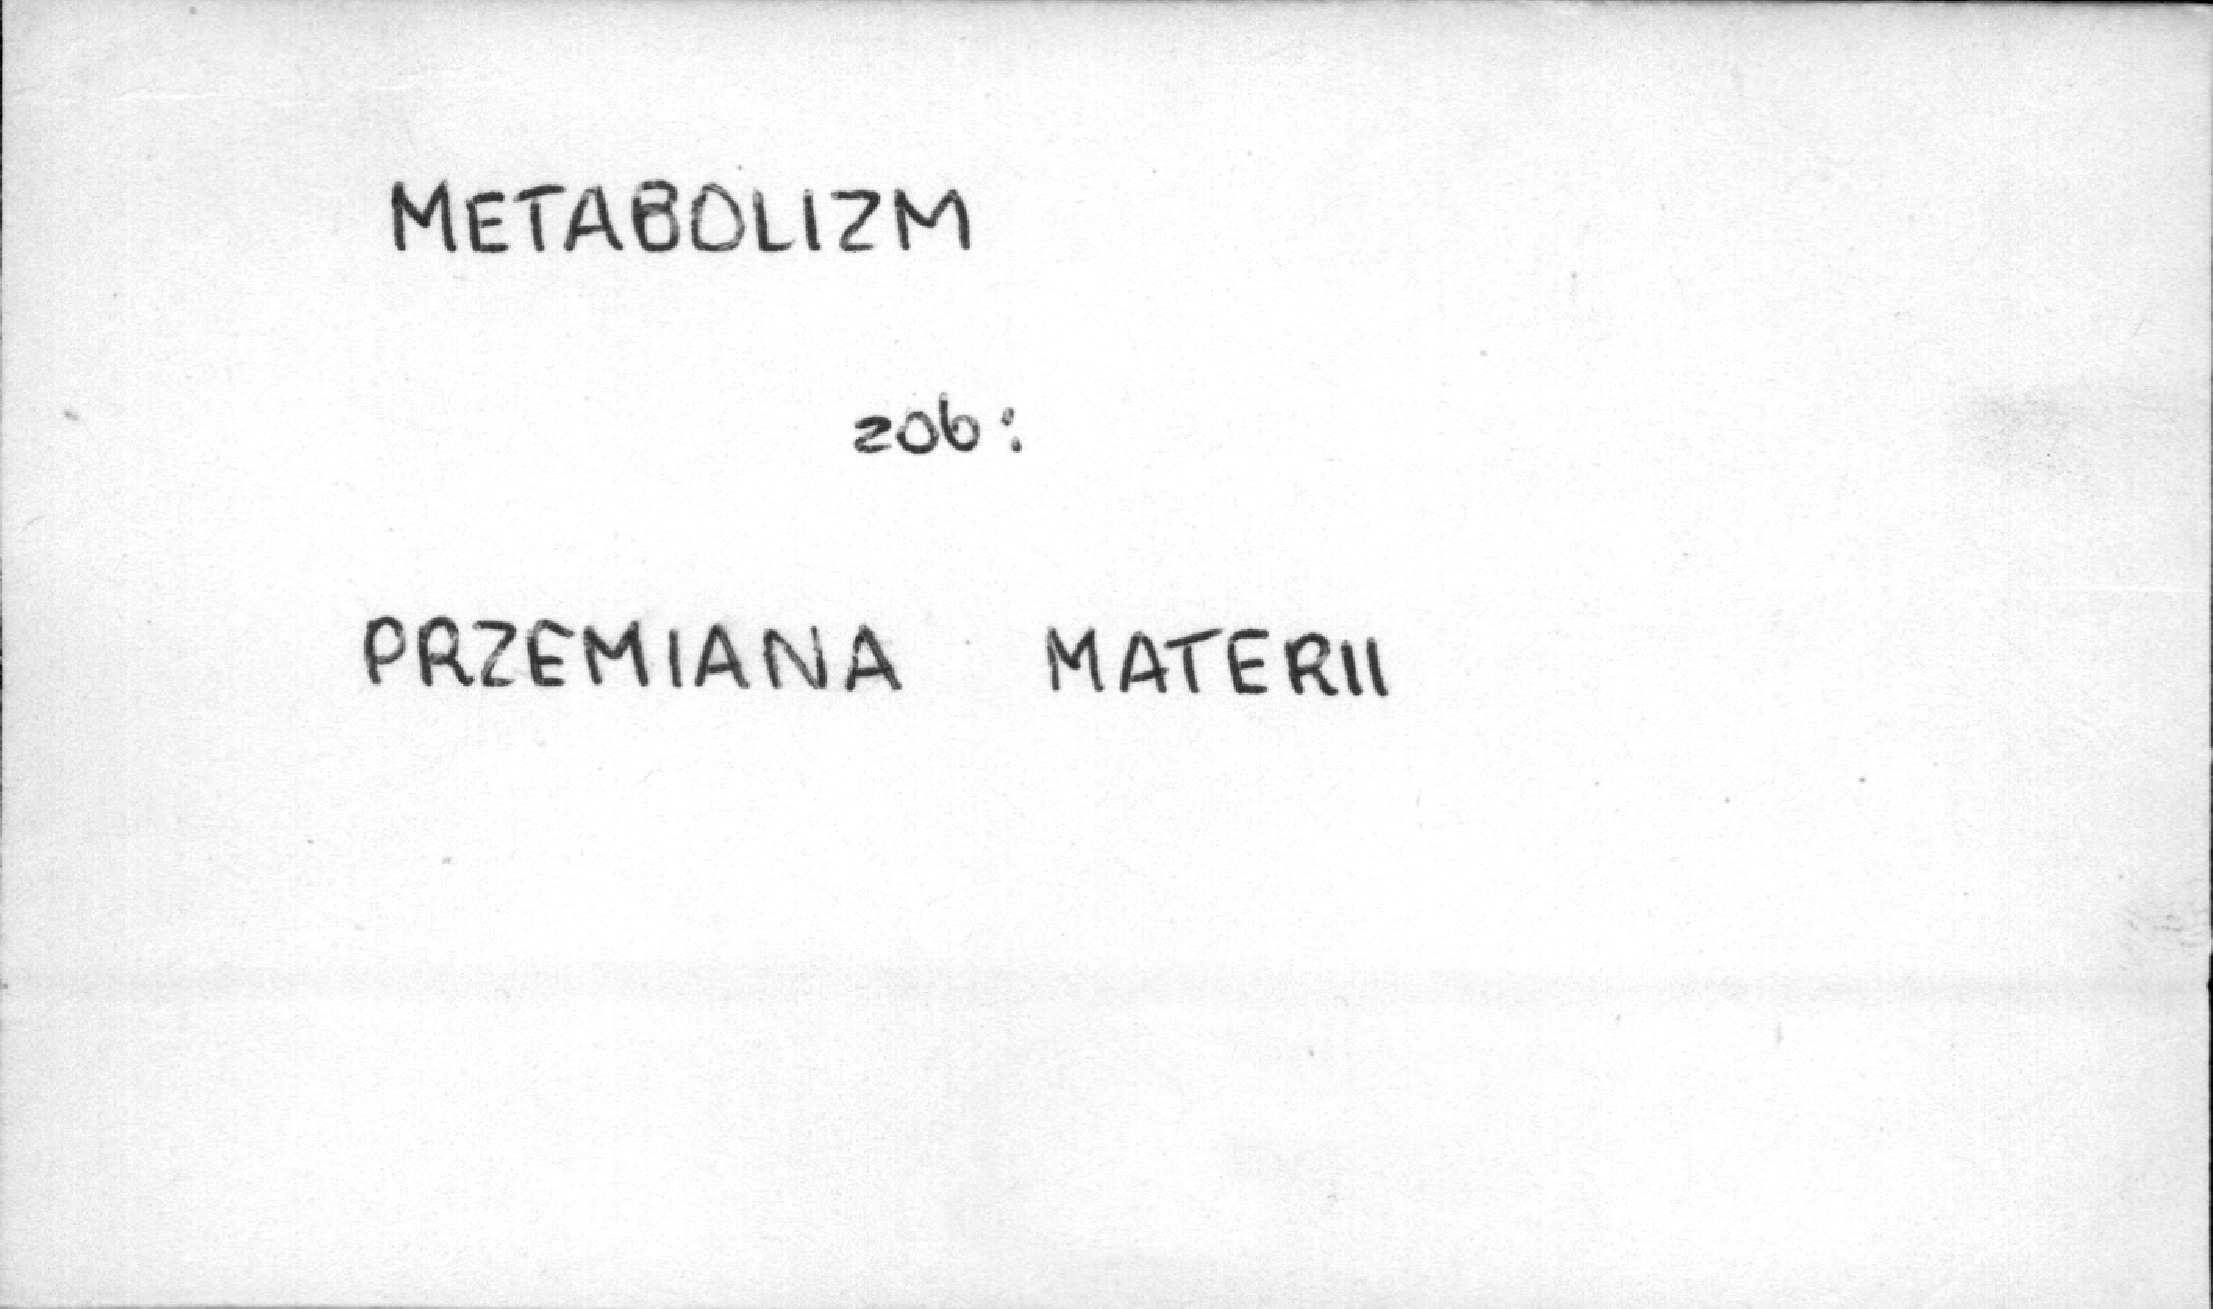 METABOLIZM
zob:
PRZEMIANA MATERII